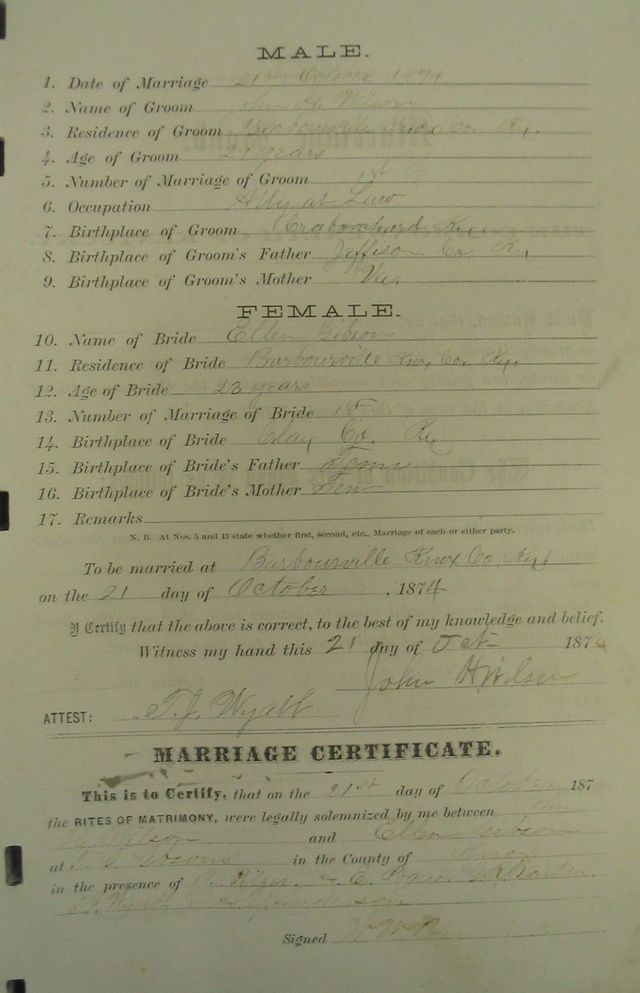 MALE.
1. Date of Marriage 21st October 1874
2. Name of Groom John H. Wilson
3. Residence of Groom Barbourville Knox Co. Ky.
4. Age of Groom 21 years
5. Number of Marriage of Groom 1st
6. Occupation Atty at Law
7. Birthplace of Groom Craborchard Ky.
8. Birthplace of Groom's Father Co. Ky.
9. Birthplace of Groom's Mother Va.
FEMALE.
10. Name of Bride Ellen Gibson
11. Residence of Bride Barbourville Knox Co. Ky.
12. Age of Bride 23 years
13. Number of Marriage of Bride 1st
14. Birthplace of Bride Clay Co. Ky
15. Birthplace of Bride's Father Tenn
16. Birthplace of Bride's Mother Ten
17. Remarks
N. B. At Nos. 5 and 13 state whether first, second, etc., Marriage of each or either party.
To be married at Barbourville Knox Co Ky
on the 21 day of October, 1874
I Certify that the above is correct, to the best of my knowledge and belief.
Witness my hand this 21 day of Oct 1874
John H Wilson
ATTEST: T. J. Wyatt
MARRIAGE CERTIFICATE.
This is to Certify, that on the 21st day of October 187
the RITES OF MATRIMONY, were legally solemnized by me between
Wilson and Ellen Gibson
at in the County of Knox
in the presence of
Wyatt
Signed